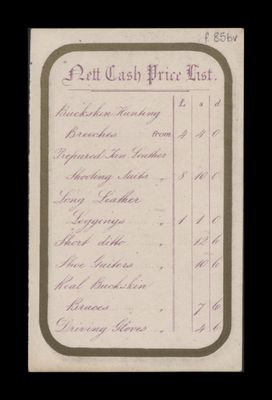 f. 85bv
Nett Cash Price List.
£ s d
Buckskin Hunting
Breeches from 4 4 0
Prepared Tan Leather
Shooting Suits " 8 10 0
Long Leather
Leggings " 1 1 0
Short ditto " 12 6
Shoe Gaiters " 10 6
Real Buckskin
Braces " 7 6
Driving Gloves " 4 6